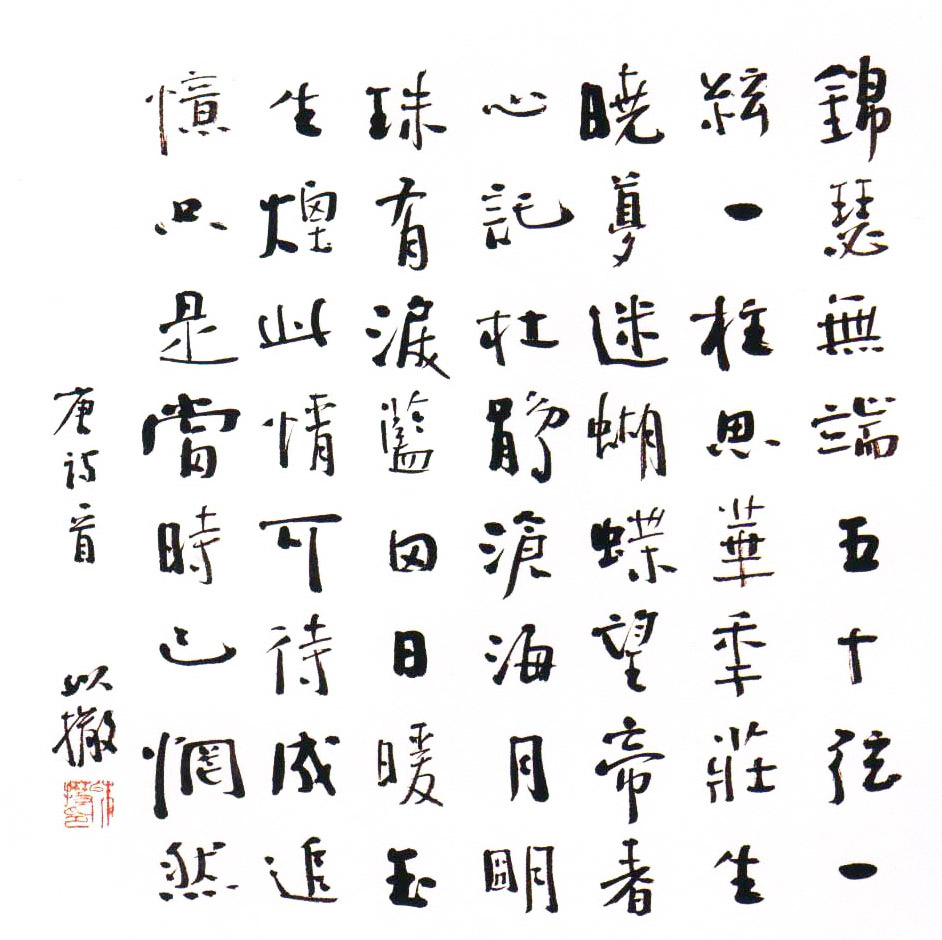 錦瑟無端五十弦一
絃一柱思華年莊生
曉夢迷蝴蝶望帝春
心託杜鵑滄海月明
珠有淚藍田日暖玉
生煙此情可待成追
憶只是當時已惘然
唐詩一首
以